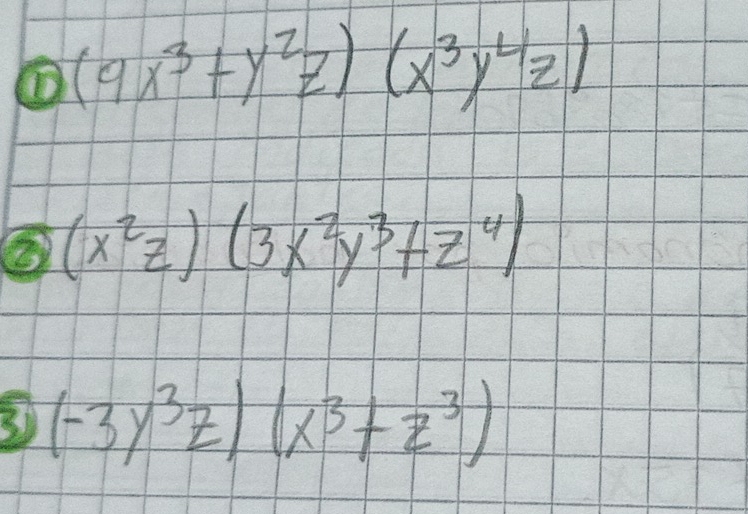 ① (9x³+y²z) (x³y⁴z)
② (x²z) (3x²y³+z⁴)
3) (-3y³z) (x³+z³)